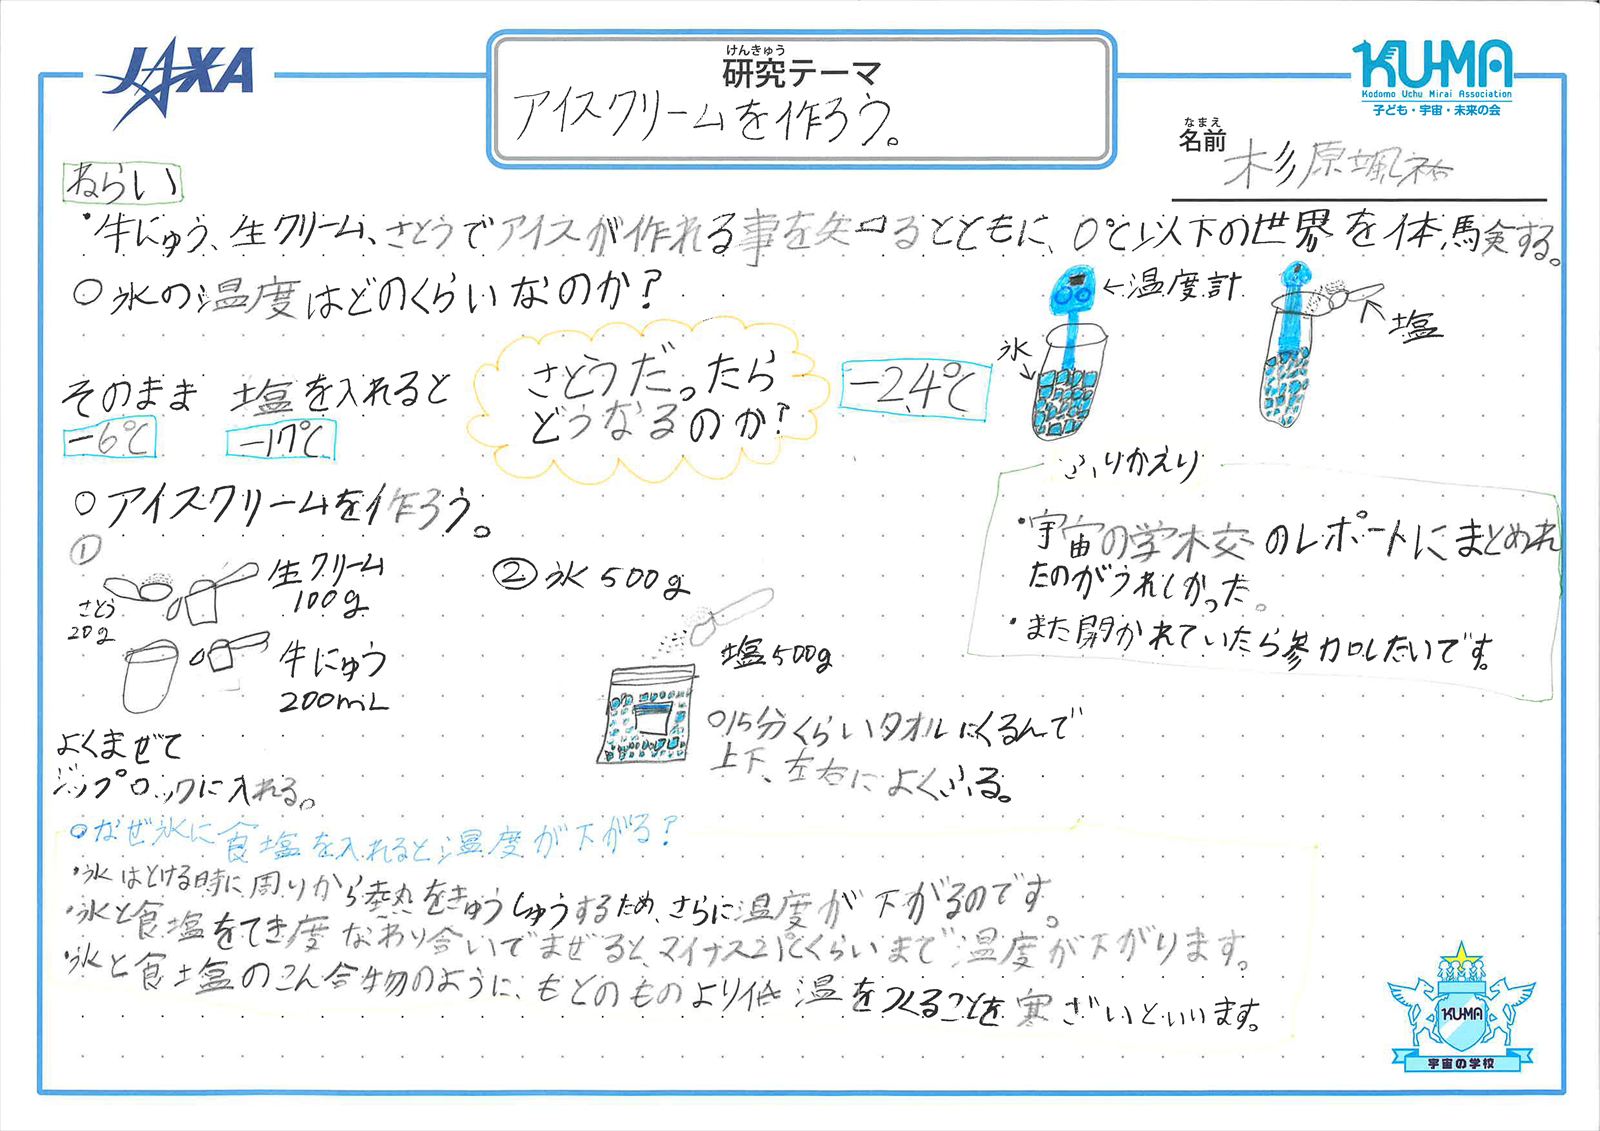 JAXA
けんきゅう
研究テーマ
アイスクリームを作ろう。
KU-MA
Kodomo Uchu Mirai Association
子ども・宇宙・未来の会
なまえ
名前
杉原颯祐
ねらい
・牛にゅう、生クリーム、さとうでアイスが作れる事を知るとともに、0℃以下の世界を体験する。
○氷の温度はどのくらいなのか？
←温度計
塩
氷
そのまま 塩を入れると
-6℃ -17℃
さとうだったら
どうなるのか？
-2.4℃
○アイスクリームを作ろう。
①
さとう
20g
生クリーム
100g
牛にゅう
200mL
よくまぜて
ジップロックに入れる。
②氷500g
塩500g
○15分くらいタオルにくるんで
上下、左右によくふる。
ふりかえり
・宇宙の学校のレポートにまとめれ
たのがうれしかった。
・また開かれていたら参加したいです。
○なぜ氷に食塩を入れると温度が下がる？
・氷はとける時に周りから熱をきゅうしゅうするため、さらに温度が下がるのです。
・氷と食塩をてき度なわり合いでまぜると、マイナス21℃くらいまで温度が下がります。
・氷と食塩のこん合物のように、もとのものより低温をつくることを寒ざいといいます。
KU-MA
宇宙の学校